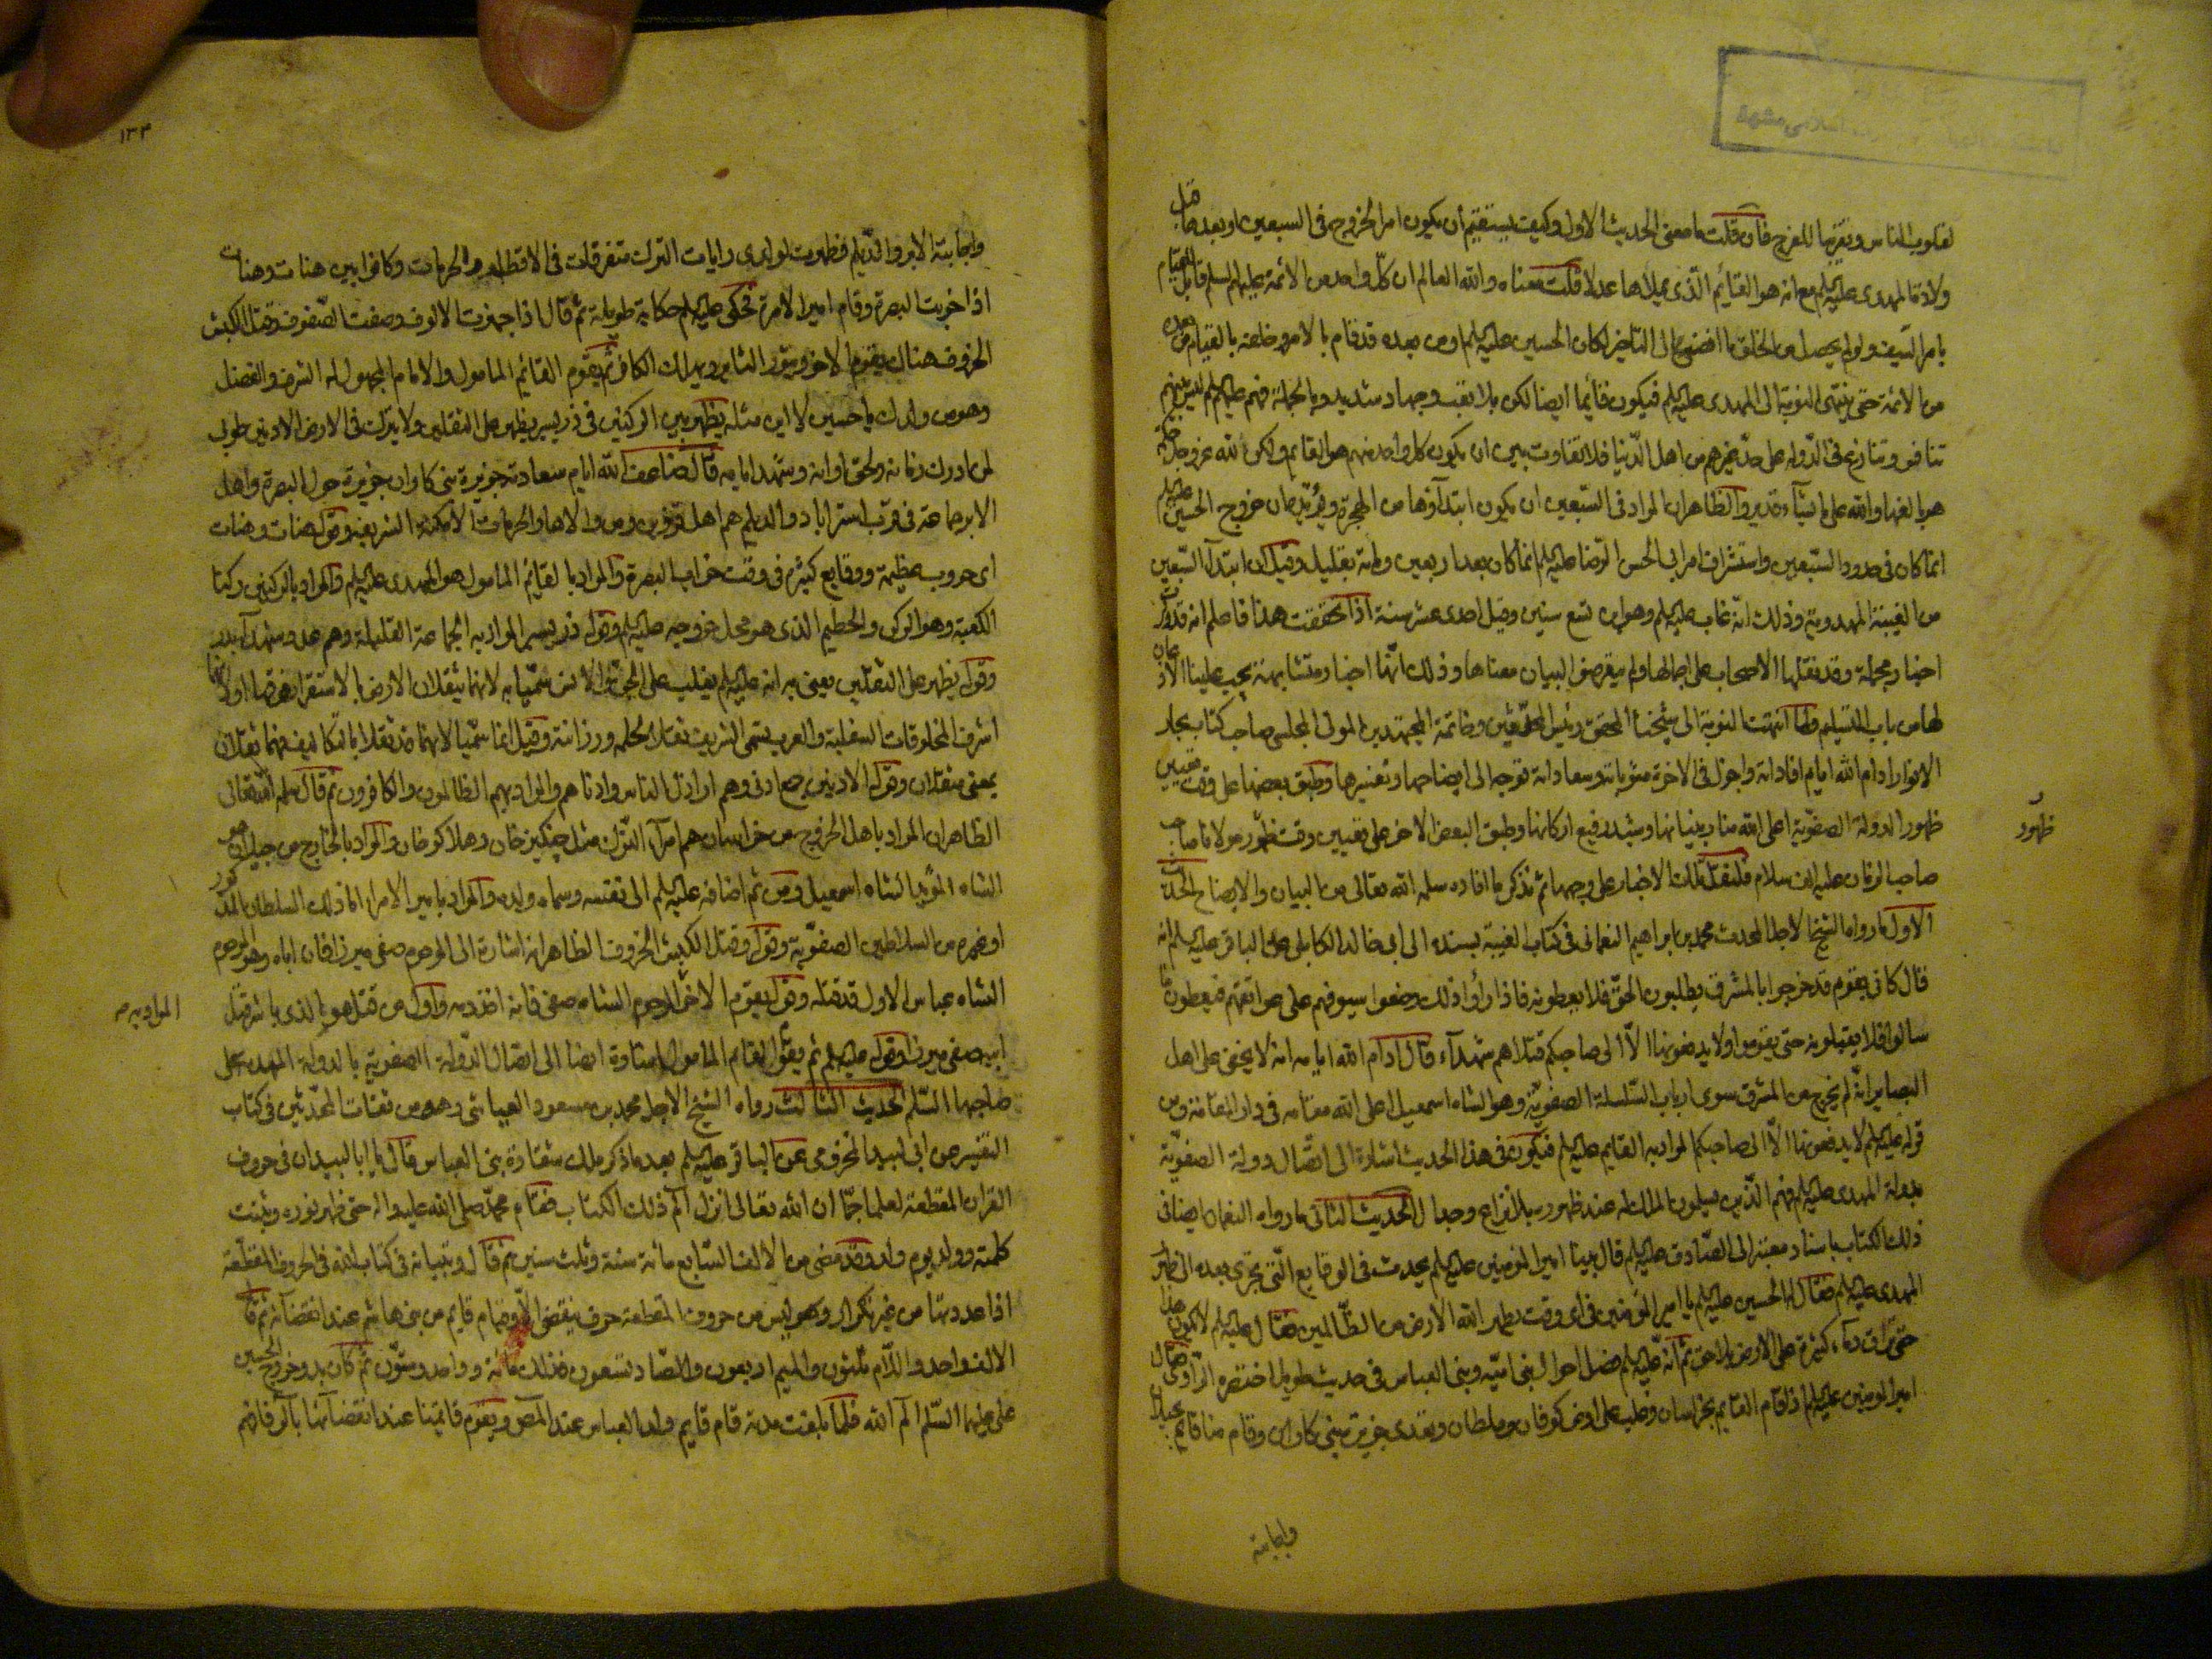 لقلوب الناس وتقريبا للفرج فان قلت ما معنى الحديث الاول وكيف يستقيم أن يكون امر الخروج فى السبعين او بعدها قبل
ولادة المهدى عليه السلم مع انه هو القائم الذى يملأها عدلا قلت معناه والله العالم ان كل واحد من الائمة عليهم السلم قابل للقيام
بامر السيف ولو لم يحصل من الخلق ما افضى الى التأخير لكان الحسين عليه السلم او من بعده قد قام بالامر وخلفه بالقيام من بعده
من الائمة حتى ينتهى النوبة الى المهدى عليه السلم فيكون قائما ايضا لكن بلا تعب وجهاد شديد وبالجملة فهم عليهم السلم ليس بينهم
تنافس وتنازع فى الدولة على حد غيرهم من اهل الدنيا فلا تفاوت بين ان يكون كل واحد منهم هو القائم ولكن لله عز وجل حكم
هو بالغها والله على ما يشآء قدير والظاهر ان المراد فى السبعين ان يكون ابتدآؤها من الهجرة ويؤيده ان خروج الحسين عليه السلم
انما كان فى حدود السبعين واستشراف امر ابى الحسن الرضا عليه السلم انما كان بعد اربعين ومائة بقليل وقيل ان ابتدآء السبعين
من الغيبة المهدوية وذلك انه غاب عليه السلم وهو ابن تسع سنين وقيل احدى عشر سنة اذا تحققت هذا فاعلم انه قد ورد
اخبار مجملة وقد نقلها الاصحاب على اجمالها ولم يتعرضوا لبيان معناها وذلك انها اخبار متشابهة يجب علينا الاذعان
لها من باب التسليم ولما انتهت النوبة الى شيخنا المحقق رئيس المحدثين وخاتمة المجتهدين المولى المجلسى صاحب كتاب بحار
الانوار ادام الله ايام افاداته واجزل فى الاخرة مثوباته وسعاداته توجه الى ايضاحها وتفسيرها وطبق بعضها على وقت تعيين
ظهور الدولة الصفوية اعلى الله منار بنيانها وشيد رفيع اركانها وطبق البعض الاخر على تعيين وقت ظهور مولانا صاحب
ظهور
صاحب الزمان عليه الف سلام فلننقل تلك الاخبار على وجهها ثم نذكر ما افاده سلمه الله تعالى من البيان والايضاح الحديث
الاول ما رواه الشيخ الاجل المحدث محمد بن ابراهيم النعمانى فى كتاب الغيبة بسنده الى ابى خالد الكابلى عن الباقر عليه السلم انه
قال كانى بقوم قد خرجوا بالمشرق يطلبون الحق فلا يعطونه فاذا رأوا ذلك وضعوا سيوفهم على عواتقهم فيعطون ما
سالوا فلا يقبلونه حتى يقوموا ولا يدفعونها الا الى صاحبكم قتلاهم شهدآء قال ادام الله ايامه انه لا يخفى على اهل
البصاير انه لم يخرج من المشرق سوى ارباب السلسلة الصفوية وهو الشاه اسمعيل اعلى الله مقامه فى دار المقامة ومن
قوله عليه السلم لا يدفعونها الا الى صاحبكم المراد به القايم عليه السلم فيكون فى هذا الحديث اشارة الى اتصال دولة الصفوية
بدولة المهدى عليه السلم فهم الذين يسلمون الملك له عند ظهوره بلا نزاع وجدال الحديث الثانى ما رواه النعمانى ايضا فى
ذلك الكتاب باسناد معتبر الى الصادق عليه السلم قال بينا امير المومنين عليه السلم يحدث فى الوقايع التى تجرى بعده الى ظهور
المهدى عليه السلم فقال له الحسين عليه السلم يا امير المومنين فى اى وقت يطهر الله الارض من الظالمين فقال عليه السلم لا يكون هذا
حتى تراق دمآء كثيرة على الارض بلا حق ثم انه عليه السلم فصل احوال بنى امية وبنى العباس فى حديث طويل اختصره الراوى فقال
امير المومنين عليه السلم اذا قام القايم بخراسان وغلب على ارض كوفان وملطان وتعدى جزيرة بنى كاوان وقام منا قايم بجيلان
واجابته
١٣٤
واجابته الابر والديلم وظهرت لولدى رايات الترك متفرقات فى الاقطار والحرمات وكانوا بين هنات وهنات
اذا خربت البصرة وقام امير الامرة فحكى عليه السلم حكاية طويلة ثم قال اذا جهزت الالوف وصفت الصفوف وقتل الكبش
الخروف هناك يقوم الاخر ويثور الثاير ويهلك الكافر ثم يقوم القائم المامول والامام المجهول له الشرف والفضل
وهو من ولدك يا حسين لا ابن مثله يظهر بين الركنين فى ذر يسير يظهر على الثقلين ولا يترك فى الارض الادنين طوبى
لمن ادرك زمانه ولحق اوانه وشهد ايامه قال ضاعف الله ايام سعادته جزيرة بنى كاوان جزيرة حول البصرة واهل
الابر جماعة فى قرب استراباد والديلم هم اهل قزوين ومن والاها والحرمات الامكنة الشريفة وقوله هنات وهنات
اى حروب عظيمة ووقايع كثيرة فى وقت خراب البصرة والمراد بالقائم المامول هو المهدى عليه السلم والمراد بالركنين ركنا
الكعبة وهو الركن والحطيم الذى هو محل خروجه عليه السلم وقوله ذر يسير المراد به الجماعة القليلة وهم عدد شهدآء بدر
وقوله يظهر على الثقلين يعنى به انه عليه السلم يغلب على الجن والانس سميا به لانهما يثقلان الارض بالاستقرار فوقها او لانهما
اشرف المخلوقات السفلية والعرب يسمى الشريف ثقلا لحلمه ورزانته وقيل انما سميا لانهما قد ثقلا بالتكاليف فهما ثقلان
بمعنى مثقلان وقوله الادنين جمع ادنى وهم اراذل الناس وادناهم والمراد بهم الظالمون والكافرون ثم قال سلمه الله تعالى
الظاهر ان المراد باهل الخروج من خراسان هم امرآء الترك مثل چنكيز خان وهلاكو خان والمراد بالخارج من جيلان هو
الشاه المؤيد الشاه اسمعيل ومن ثم اضافه عليه السلم الى نفسه وسماه ولده والمراد بامير الامرة اما ذلك السلطان المذكور
او غيره من السلاطين الصفوية وقوله وقتل الكبش الخروف الظاهر انه اشارة الى المرحوم صفى ميرزا فان اباه وهو المرحوم
الشاه عباس الاول قد قتله وقوله يقوم الاخر المرحوم الشاه صفى فانه اخذ دمه واول من قتل هو الذى باشر قتل
المراد به
ابيه صفى ميرزا وقوله عليه السلم ثم يقوم القايم المامول اشارة ايضا الى اتصال الدولة الصفوية بالدولة المهدية على
صاحبها السلم الحديث الثالث رواه الشيخ الاجل محمد بن مسعود العياشى وهو من ثقات المحدثين فى كتاب
التفسير عن ابى لبيد المخزومى عن الباقر عليه السلم بعد ما ذكر ملك شقاوة بنى العباس قال يا ابا لبيد ان فى حروف
القران المقطعة لعلما جما ان الله تعالى انزل الم ذلك الكتاب فقام محمد صلى الله عليه واله حتى ظهر نوره وثبتت
كلمته وولد يوم ولد وقد مضى من الالف السابع مائة سنة وثلث سنين ثم قال وتبيانه فى كتاب الله فى الحروف المقطعة
اذا عددتها من غير تكرار وليس من حروف المقطعة حرف ينقضى الا وقيام قايم من بنى هاشم عند انقضآئه ثم قال
الالف واحد واللام ثلثون والميم اربعون والصاد تسعون فذلك مائة وواحد وستون ثم كان بدو خروج الحسين
على عليهما السلم الم الله فلما بلغت مدته قام قايم ولد العباس عند المص ويقوم قائمنا عند انقضآئها بالر فافهم